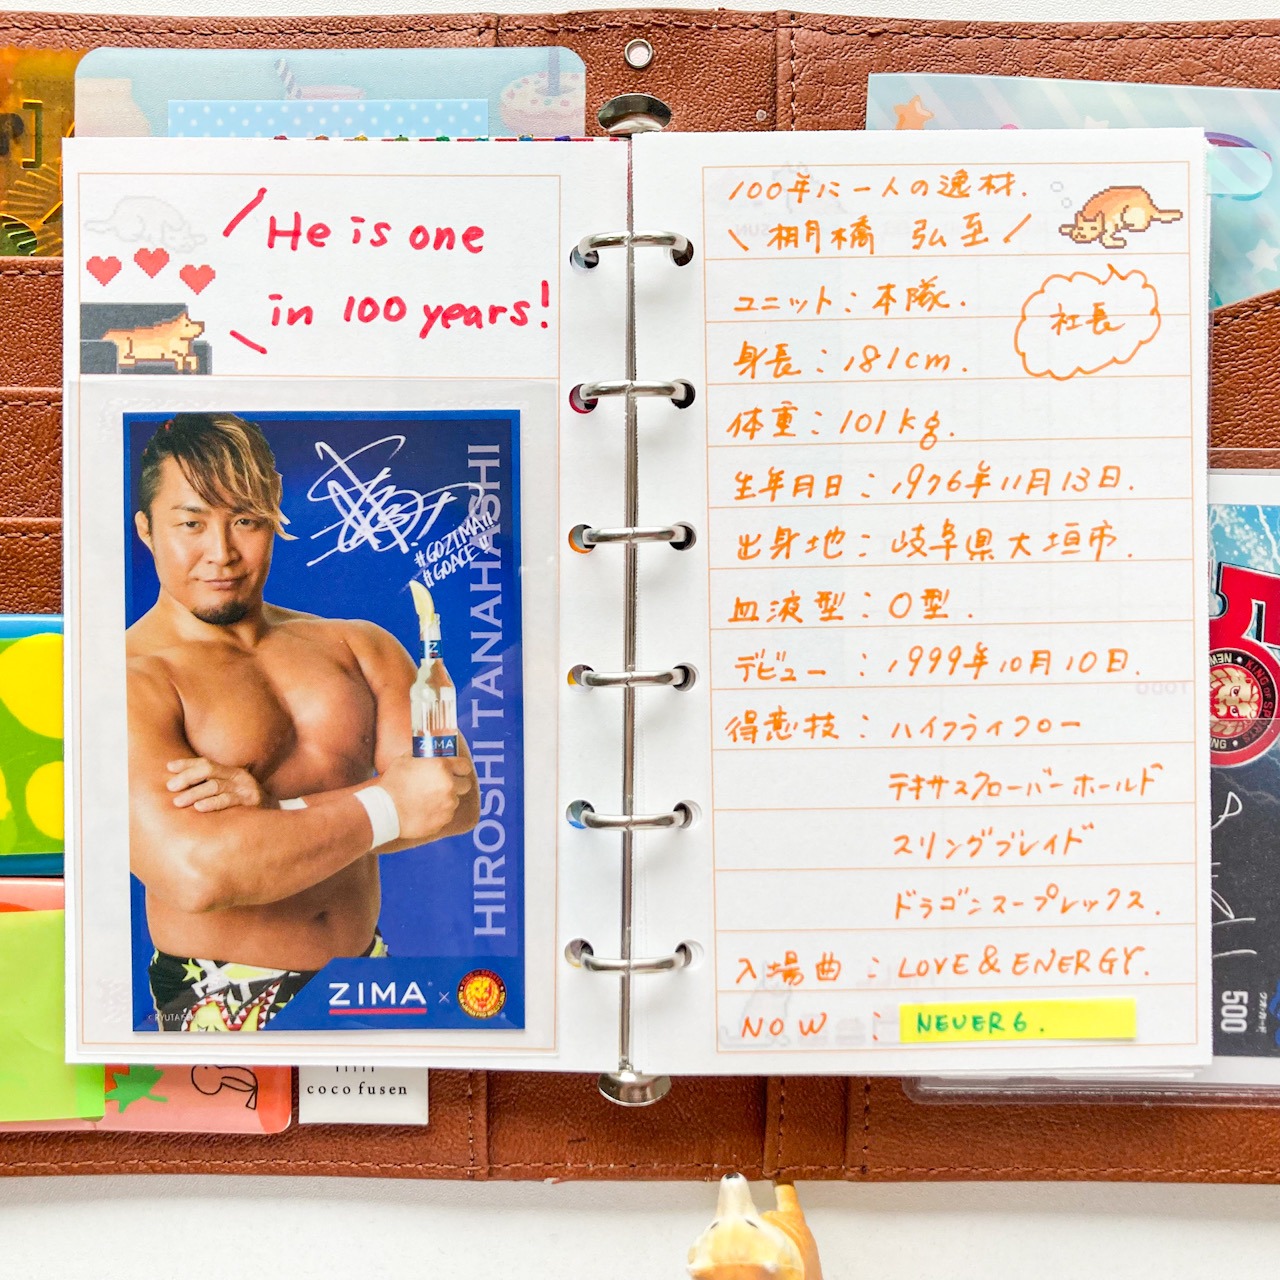 He is one
in 100 years!
#GOZIMA!!
#GOACE!!
HIROSHI TANAHASHI
ZIMA
ZIMA ×
coco fusen
100年に一人の逸材.
棚橋 弘至
ユニット:本隊.
社長
身長:181cm.
体重:101kg.
生年月日:1976年11月13日.
出身地:岐阜県大垣市.
血液型:O型.
デビュー:1999年10月10日.
得意技:ハイフライフロー
テキサスクローバーホールド
スリングブレイド
ドラゴンスープレックス.
入場曲:LOVE&ENERGY.
NOW : NEVER6.
クオ・カード
500